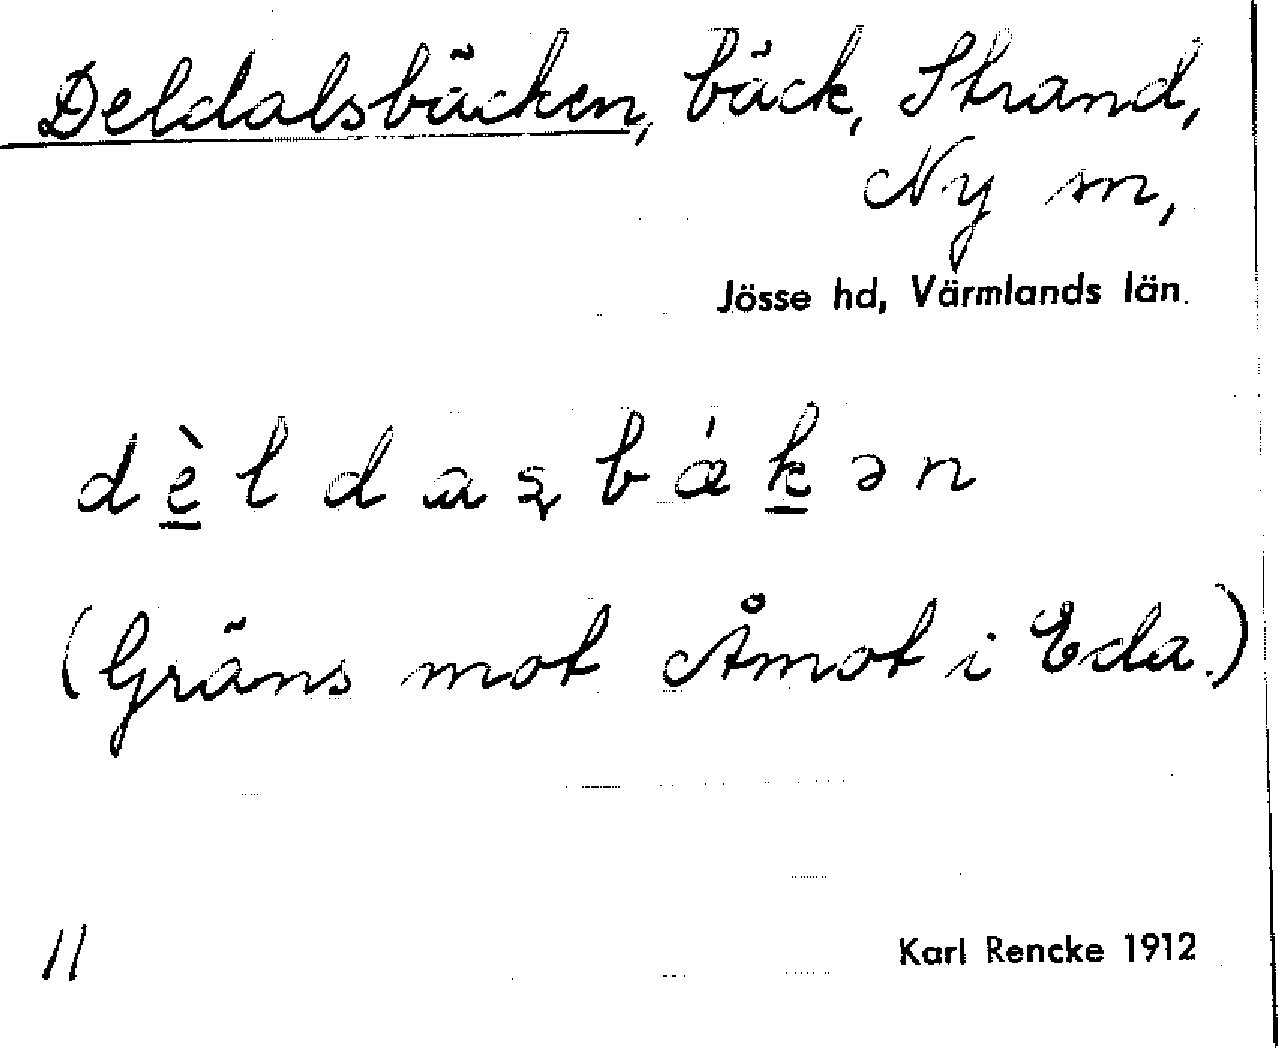 Deldalsbäcken, bäck, Strand,
Ny sn,
Jösse hd, Värmlands län.
dèldaʂbǽkən
(Gräns mot Åmot i Eda.)
11
Karl Rencke 1912